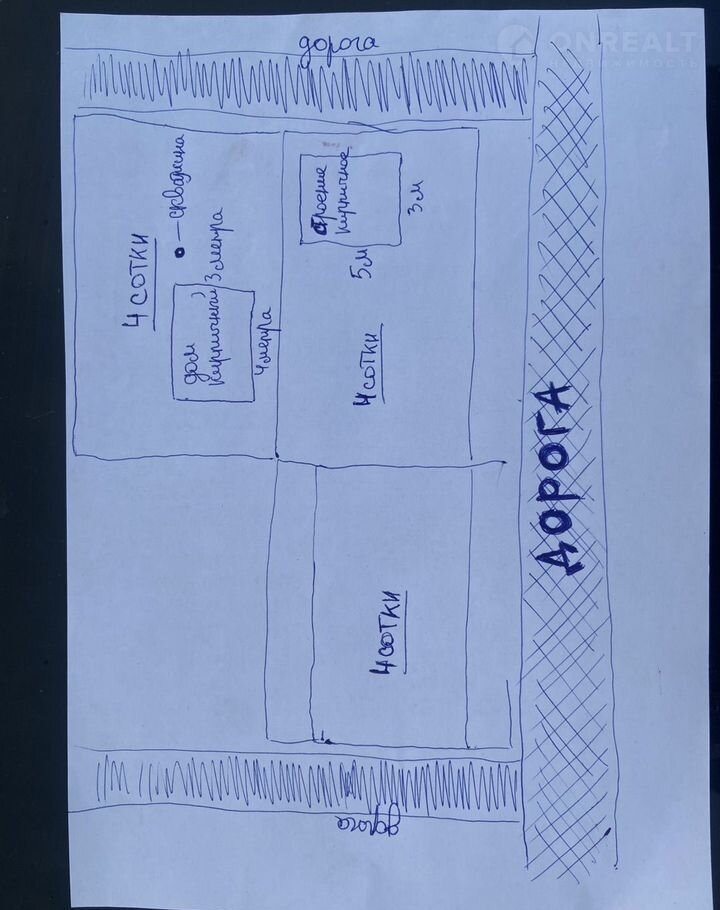 ONREALT
НЕДВИЖИМОСТЬ
дорога
скважина
4 сотки
3 метра
дом
кирпичный
4 метра
строение
кирпичное
3 м
5 м
4 сотки
ДОРОГА
4 сотки
дорога